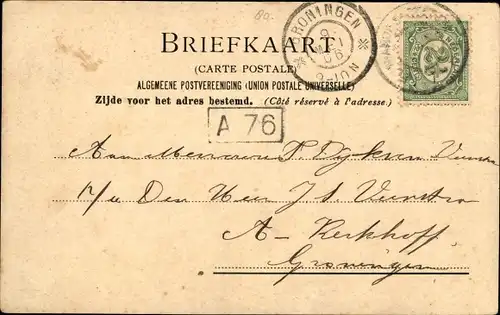 GRONINGEN
BRIEFKAART
(CARTE POSTALE)
ALGEMEENE POSTVEREENIGING (UNION POSTALE UNIVERSELLE)
Zijde voor het adres bestemd. (Côté réservé à l'adresse.)
A 76
Aan Mevrouw
p/a Den Heer J. S. Veenstra
A-Kerkhoff
Groningen